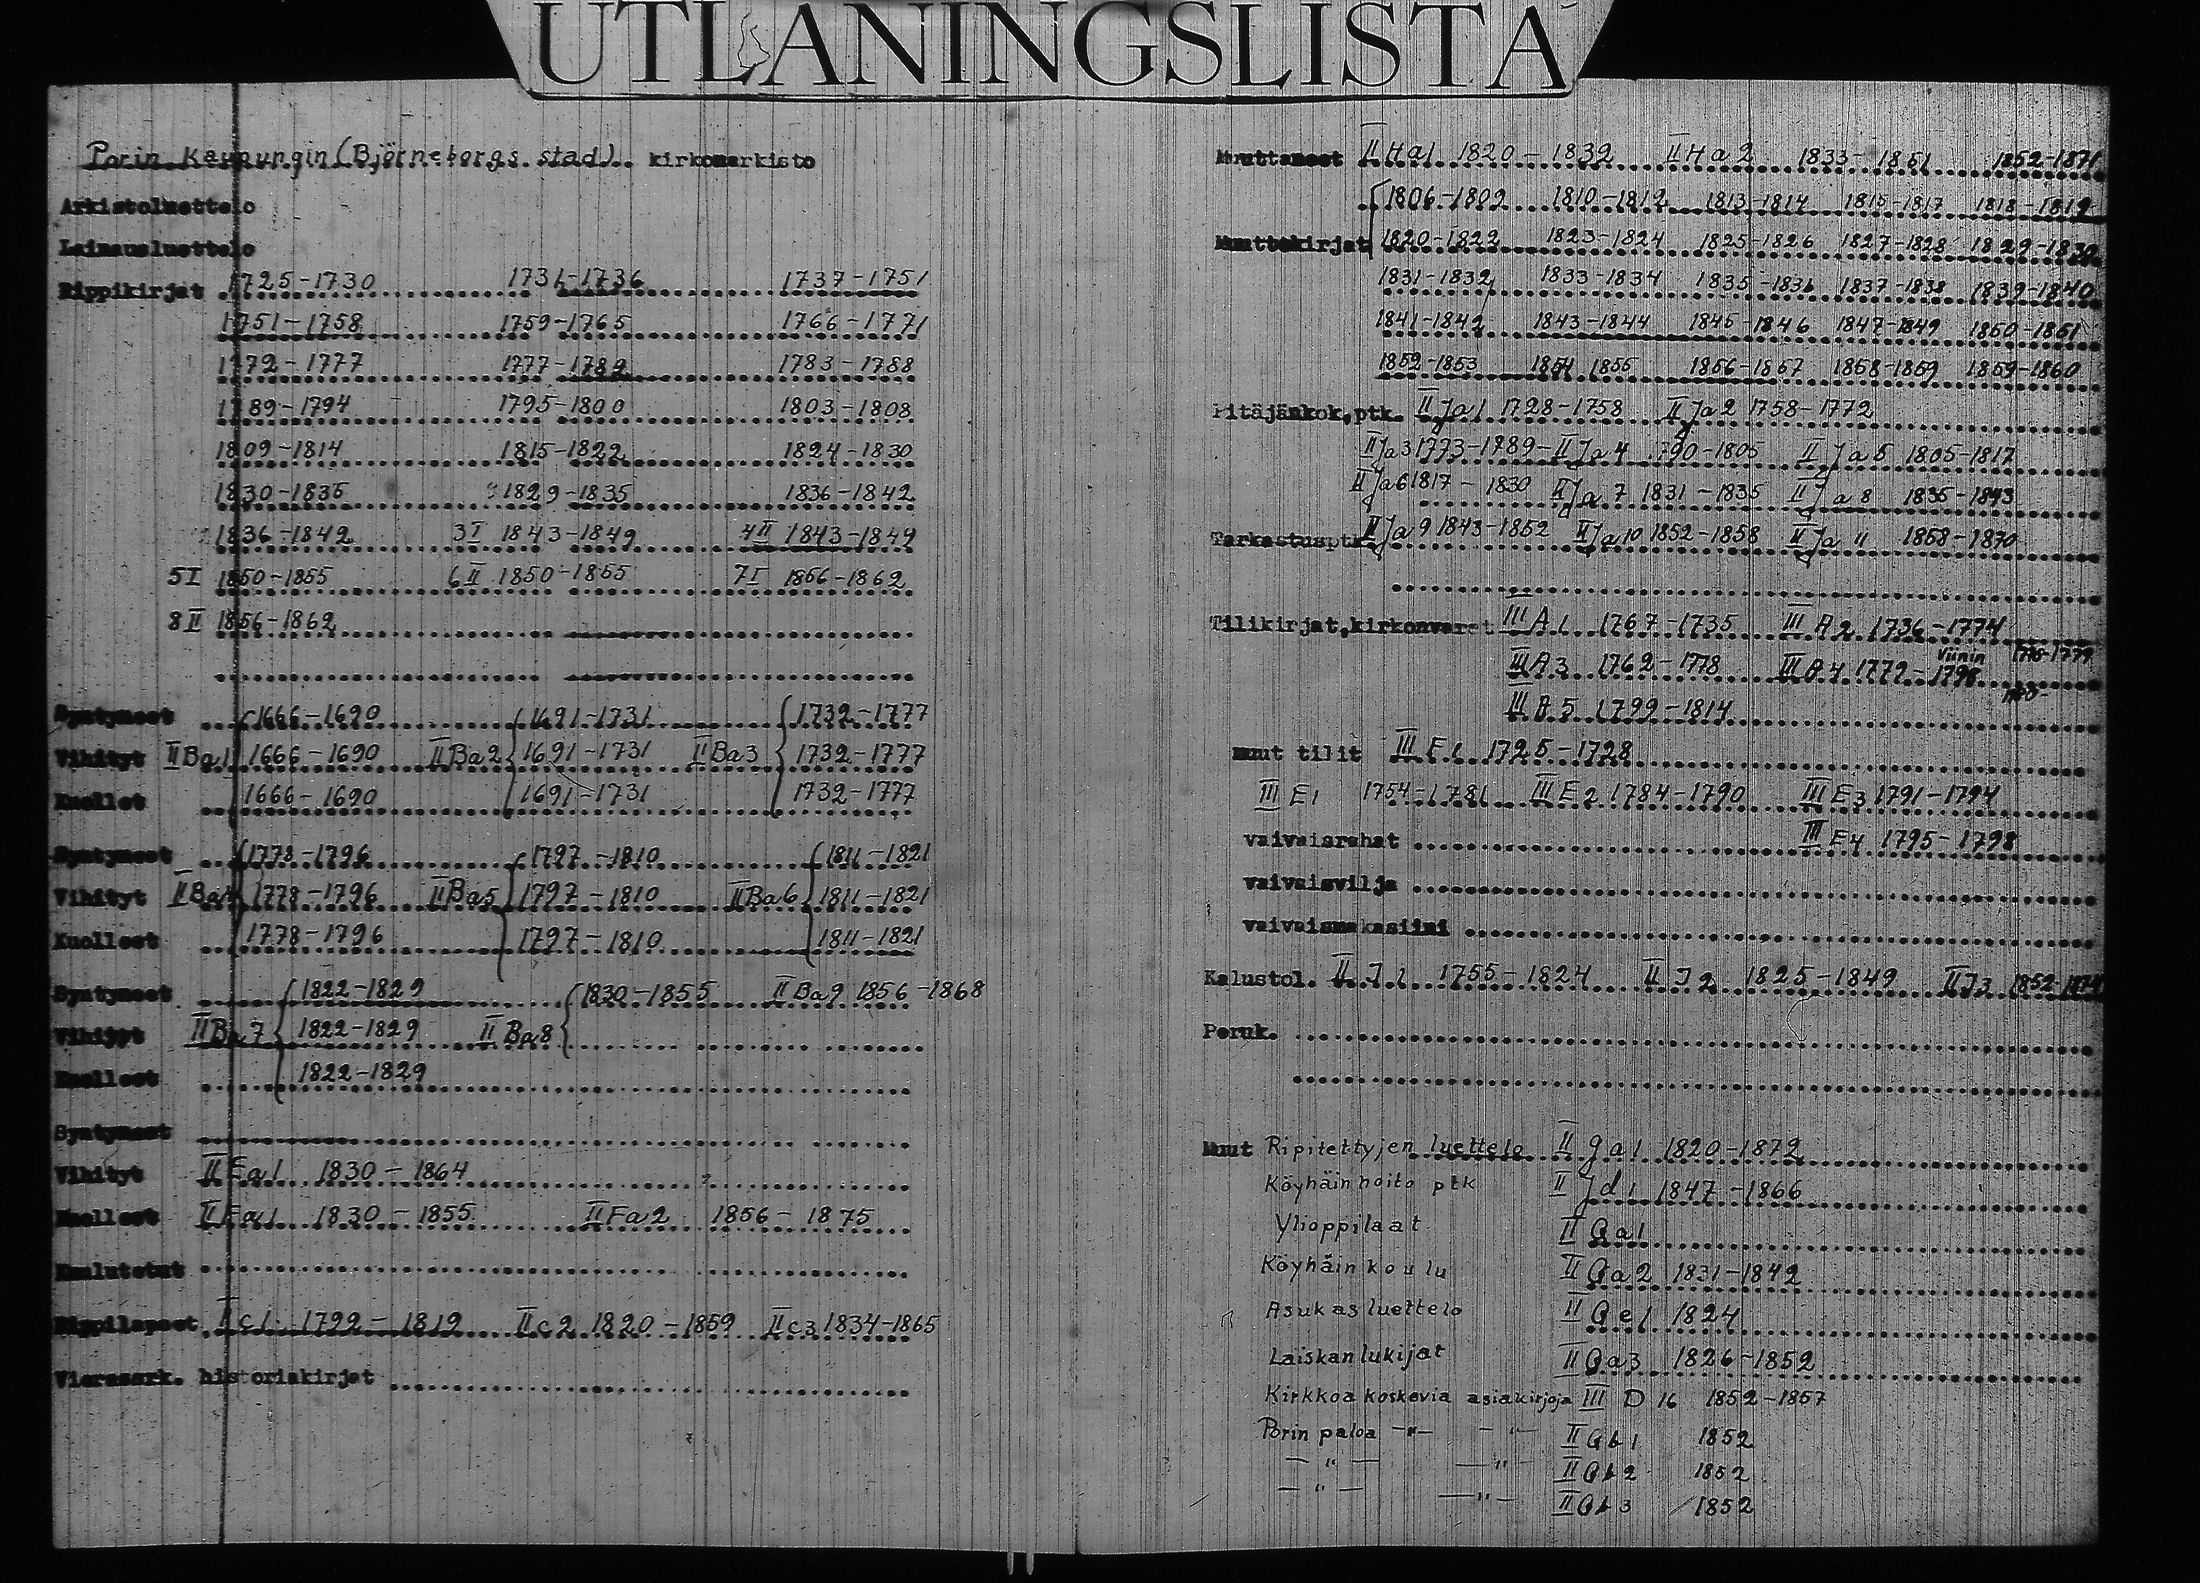 UTLÅNINGSLISTA
Porin Kaupungin (Björneborgs stad) kirkonarkisto
Arkistoluettelo
Lainausluettelo
Rippikirjat 1725-1730 1731-1736 1737-1751
1751-1758 1759-1765 1766-1771
1772-1777 1777-1782 1783-1788
1789-1794 1795-1800 1803-1808
1809-1814 1815-1822 1824-1830
1830-1835 1829-1835 1836-1842
1836-1842 3I 1843-1849 4II 1843-1849
5I 1850-1855 6II 1850-1855 7I 1856-1862
8II 1856-1862
Syntyneet 1666-1690 1691-1731 1732-1777
Vihityt II Ba1 1666-1690 II Ba2 1691-1731 II Ba3 1732-1777
Kuollet 1666-1690 1691-1731 1732-1777
Syntyneet 1778-1796 1797-1810 1811-1821
Vihityt II Ba4 1778-1796 II Ba5 1797-1810 II Ba6 1811-1821
Kuolleet 1778-1796 1797-1810 1811-1821
Syntyneet 1822-1829 1830-1855 II Ba9 1856-1868
Vihityt II Ba7 1822-1829 II Ba8
Kuolleet 1822-1829
Syntyneet
Vihityt II Ea1 1830-1864
Kuolleet II Fa1 1830-1855 II Fa2 1856-1875
Kuulutetut
Rippilapset II c1 1792-1819 II c2 1820-1859 II c3 1834-1865
Vierasark. historiakirjat
Muuttaneet II Ha1 1820-1832 II Ha2 1833-1851 1852-1871
1806-1809 1810-1812 1813-1814 1815-1817 1818-1819
Muuttokirjat 1820-1822 1823-1824 1825-1826 1827-1828 1829-1830
1831-1832 1833-1834 1835-1836 1837-1838 1839-1840
1841-1842 1843-1844 1845-1846 1847-1849 1850-1851
1852-1853 1854 1855 1856-1857 1858-1859 1859-1860
Pitäjänkok,ptk. II Ja1 1728-1758 II Ja2 1758-1772
II Ja3 1773-1789 II Ja4 790-1805 II Ja5 1805-1817
II Ja6 1817-1830 II Ja7 1831-1835 II Ja8 1835-1843
Tarkastusptk II Ja9 1843-1852 II Ja10 1852-1858 II Ja11 1858-1870
Tilikirjat,kirkonvarat III A1 1767-1735 III A2 1736-1774
III A3 1762-1778 III A4 1772-1798 Viinin 1776-1779
III A5 1799-1814
muut tilit III E1 1725-1728
III E1 1754-1781 III E2 1784-1790 III E3 1791-1794
vaivaisrahat III E4 1795-1798
vaivaisvilja
vaivaismakasiini
Kalustol. II J1 1755-1824 II J2 1825-1849 II J3 1852-
Peruk.
Muut Ripitettyjen luettelo II ga1 1820-1872
Köyhäinhoito ptk II Jd1 1847-1866
Ylioppilaat II Ga1
Köyhäin koulu II Ga2 1831-1842
Asukasluettelo II Ge1 1824
Laiskanlukijat II Ga3 1826-1852
Kirkkoa koskevia asiakirjoja III D 16 1852-1857
Porin paloa -"- -"- II Gb1 1852
-"- -"- II Gb2 1852
-"- -"- II Gb3 1852